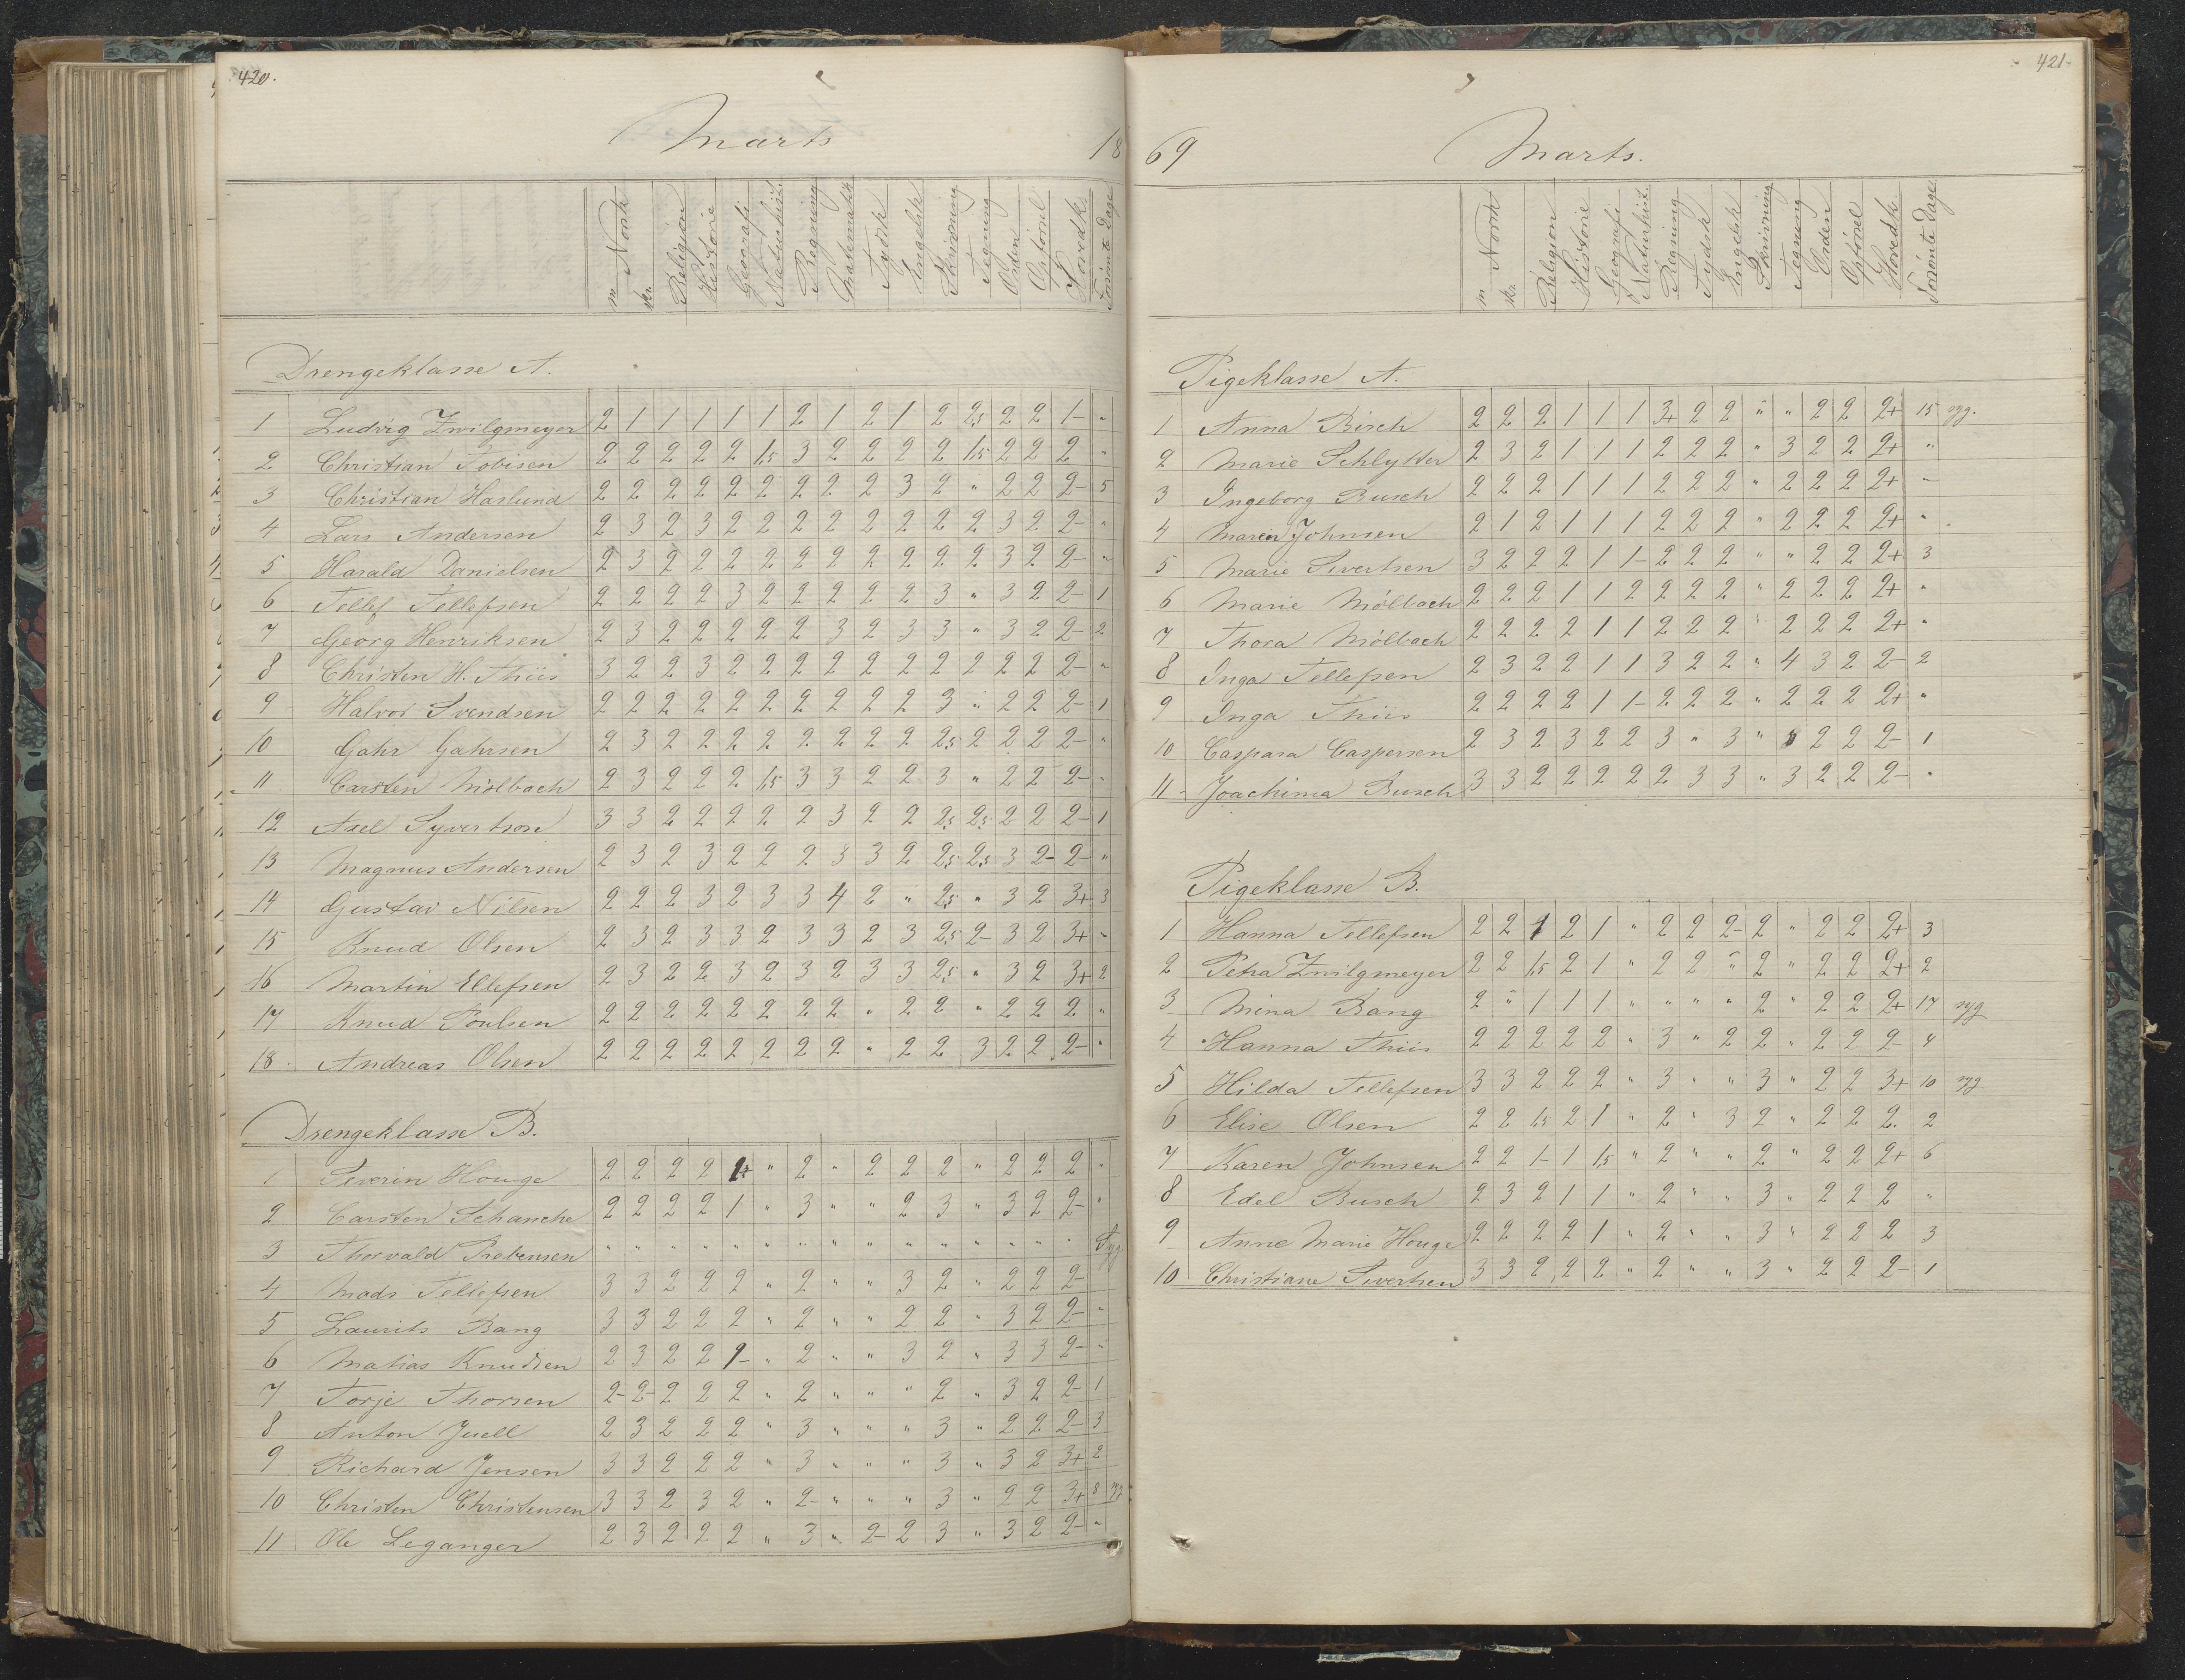 420.
Marts 18
m Norsk
skr.
Religion
Historie
Geografi
Naturhist.
Regning
Matematik
Tydsk
Engelsk
Skrivning
Tegning
Orden
Opførsel
Hovedk.
Forsømte Dage
Drengeklasse A.
1 Ludvig Zwilgmeyer 2 1 1 1 1 1 2 1 2 1 2 2,5 2 2 1- "
2 Christian Tobisen 2 2 2 2 2 1,5 3 2 2 2 2 1,5 2 2 2 "
3 Christian Haslund 2 2 2 2 2 2 2 2 2 3 2 " 2 2 2- 5
4 Lars Andersen 2 3 2 3 2 2 2 2 2 2 2 2 3 2 2- "
5 Harald Danielsen 2 3 2 2 2 2 2 2 2 2 2 2 3 2 2- "
6 Tellef Tellefsen 2 2 2 2 3 2 2 2 2 2 3 " 3 2 2- 1
7 Georg Henriksen 2 3 2 2 2 2 2 3 2 3 3 " 3 2 2- 2
8 Christen H. Thiis 3 2 2 3 2 2 2 2 2 2 2 2 2 2 2- "
9 Halvor Svendsen 2 2 2 2 2 2 2 2 2 2 3 " 2 2 2- 1
10 Gahr Gahrsen 2 3 2 2 2 2 2 2 2 2 2,5 2 2 2 2- "
11 Carsten Mölbach 2 3 2 2 2 1,5 3 3 2 2 3 " 2 2 2- "
12 Axel Syvertson 3 3 2 2 2 2 2 3 2 2 2,5 2,5 2 2 2- 1
13 Magnus Andersen 2 3 2 3 2 2 2 3 3 2 2,5 2,5 3 2- 2- "
14 Gustav Nilsen 2 2 2 3 2 3 3 4 2 " 2,5 " 3 2 3+ 3
15 Knud Olsen 2 3 2 3 3 2 3 3 2 3 2,5 2- 3 2 3+ "
16 Martin Ellefsen 2 3 2 2 3 2 3 2 3 3 2,5 " 3 2 3+ 2
17 Knud Poulsen 2 2 2 2 2 2 2 2 " 2 2 " 2 2 2 "
18 Andreas Olsen 2 2 2 2 2 2 2 2 " 2 2 3 2 2 2- "
Drengeklasse B.
1 Severin Houge 2 2 2 2 1+ " 2 " 2 2 2 " 2 2 2 "
2 Carsten Schanche 2 2 2 2 1 " 3 " " 2 3 " 3 2 2- "
3 Thorvald Prebensen " " " " " " " " " " " " " " " Syg
4 Mads Tellefsen 3 3 2 2 2 " 2 " " 3 2 " 2 2 2-
5 Laurits Bang 3 3 2 2 2 " 2 " " 2 2 " 3 2 2- "
6 Matias Knudsen 2 3 2 2 1- " 2 " " 3 2 " 3 3 2- "
7 Torje Thorsen 2- 2- 2 2 2 " 2 " " " 2 " 3 2 2- 1
8 Anton Juell 2 3 2 2 2 " 3 " " " 3 " 2 2 2- 3
9 Richard Jensen 3 3 2 2 2 " 3 " " " 3 " 3 2 3+ 2
10 Christen Christensen 3 3 2 3 2 " 2- " " " 3 " 2 2 3+ 8 syg
11 Ole Leganger 2 3 2 2 2 " 3 " 2- 2 3 " 3 2 2- "
421.
69 Marts.
m Norsk
skr.
Religion
Historie
Geografi
Naturhist.
Regning
Tydsk
Engelsk
Skrivning
Tegning
Orden
Opførsel
Hovedk.
Forsømte Dage.
Pigeklasse A.
1 Anna Birch 2 2 2 1 1 1 3+ 2 2 " " 2 2 2+ 15 syg.
2 Marie Schlytter 2 3 2 1 1 1 2 2 2 " 3 2 2 2+ "
3 Ingeborg Busch 2 2 2 1 1 1 2 2 2 " 2 2 2 2+ "
4 Maren Johnsen 2 1 2 1 1 1 2 2 2 " 2 2 2 2+ "
5 Marie Sivertsen 3 2 2 2 1 1- 2 2 2 " " 2 2 2+ 3
6 Marie Mölbach 2 2 2 1 1 2 2 2 2 " 2 2 2 2+ "
7 Thora Mölbach 2 2 2 2 1 1 2 2 2 " 2 2 2 2+ "
8 Inga Tellefsen 2 3 2 2 1 1 3 2 2 " 4 3 2 2- 2
9 Inga Thiis 2 2 2 2 1 1- 2 2 2 " 2 2 2 2+ "
10 Caspara Caspersen 2 3 2 3 2 2 3 " 3 " 2 2 2- 1
11 Joachima Busch 3 3 2 2 2 2 2 3 3 " 3 2 2 2- "
Pigeklasse B.
1 Hanna Tellefsen 2 2 1 2 1 " 2 2 2- 2 " 2 2 2+ 3
2 Petra Zwilgmeyer 2 2 1,5 2 1 " 2 2 " 2 " 2 2 2+ 2
3 Mina Bang 2 " 1 1 1 " " " " 2 " 2 2 2+ 17 syg
4 Hanna Thiis 2 2 2 2 2 " 3 " 2 2 " 2 2 2- 4
5 Hilda Tellefsen 3 3 2 2 2 " 3 " " 3 " 2 2 3+ 10 syg
6 Elise Olsen 2 2 1,5 2 1 " 2 " 3 2 " 2 2 2. 2
7 Karen Johnsen 2 2 1- 1 1,5 " 2 " " 2 " 2 2 2+ 6
8 Edel Busch 2 3 2 1 1 " 2 " " 3 " 2 2 2 "
9 Anne Marie Houge 2 2 2 2 1 " 2 " " 3 " 2 2 2 3
10 Christiane Sivertsen 3 3 2 2 2 " 2 " " 3 " 2 2 2- 1